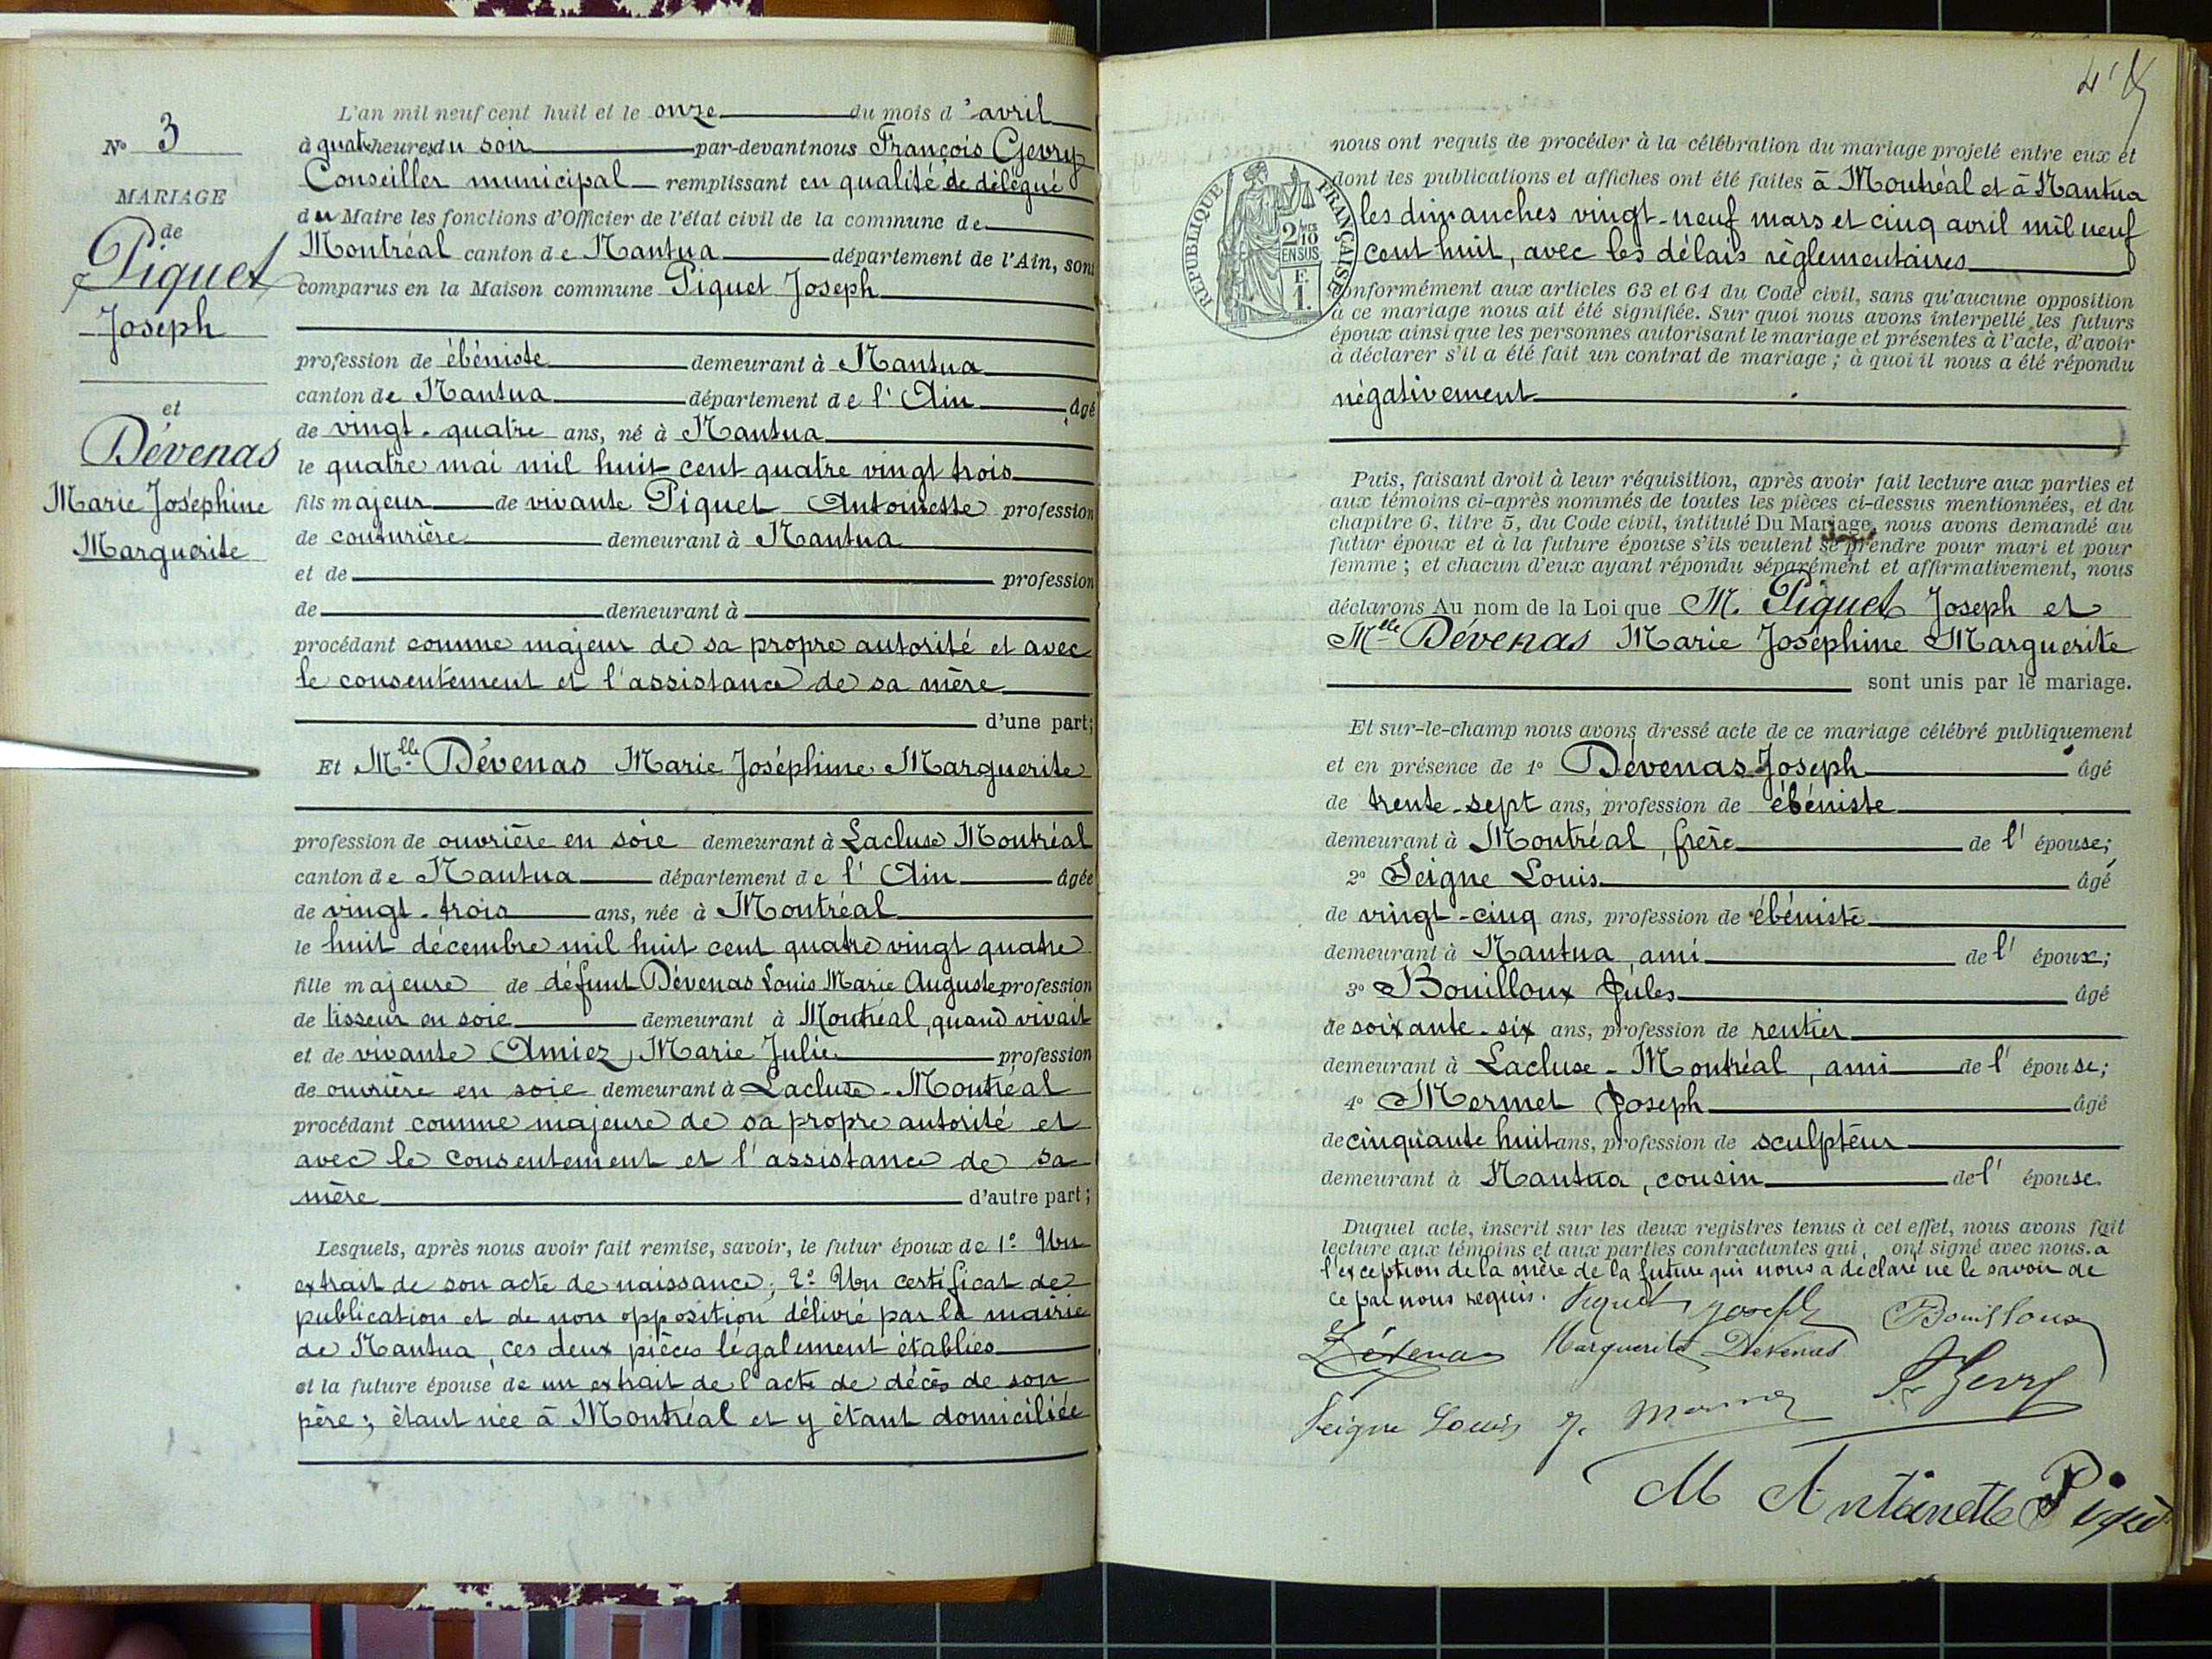 N° 3
MARIAGE
de
Piquet
Joseph
et
Dévenas
Marie Joséphine
Marguerite
L'an mil neuf cent huit et le onze du mois d'avril
à quatre heures du soir par-devant nous François Gevry
Conseiller municipal remplissant en qualité de délégué
du Maire les fonctions d'Officier de l'état civil de la commune de
Montréal canton de Nantua département de l'Ain, sont
comparus en la Maison commune Piquet Joseph
profession de ébéniste demeurant à Nantua
canton de Nantua département de l'Ain âgé
de vingt-quatre ans, né à Nantua
le quatre mai mil huit cent quatre vingt trois
fils majeur de vivante Piquet Antoinette profession
de couturière demeurant à Nantua
et de profession
de demeurant à
procédant comme majeur de sa propre autorité et avec
le consentement et l'assistance de sa mère
d'une part;
Et Mlle Dévenas Marie Joséphine Marguerite
profession de ouvrière en soie demeurant à Lacluse Montréal
canton de Nantua département de l'Ain âgée
de vingt-trois ans, née à Montréal
le huit décembre mil huit cent quatre vingt quatre
fille majeure de défunt Dévenas Louis Marie Auguste profession
de tisseur en soie demeurant à Montréal, quand vivait
et de vivante Amiez, Marie Julie profession
de ouvrière en soie demeurant à Lacluse-Montréal
procédant comme majeure de sa propre autorité et
avec le consentement et l'assistance de sa
mère d'autre part;
Lesquels, après nous avoir fait remise, savoir, le futur époux de 1° Un
extrait de son acte de naissance; 2° Un certificat de
publication et de non opposition délivré par la mairie
de Nantua, ces deux pièces légalement établies
et la future épouse de un extrait de l'acte de décès de son
père; étant née à Montréal et y étant domiciliée
RÉPUBLIQUE FRANÇAISE
2/10
EN SUS
F.
1.
nous ont requis de procéder à la célébration du mariage projeté entre eux et
dont les publications et affiches ont été faites à Montréal et à Nantua
les dimanches vingt-neuf mars et cinq avril mil neuf
cent huit, avec les délais règlementaires
conformément aux articles 63 et 64 du Code civil, sans qu'aucune opposition
à ce mariage nous ait été signifiée. Sur quoi nous avons interpellé les futurs
époux ainsi que les personnes autorisant le mariage et présentes à l'acte, d'avoir
à déclarer s'il a été fait un contrat de mariage; à quoi il nous a été répondu
négativement
Puis, faisant droit à leur réquisition, après avoir fait lecture aux parties et
aux témoins ci-après nommés de toutes les pièces ci-dessus mentionnées, et du
chapitre 6, titre 5, du Code civil, intitulé Du Mariage, nous avons demandé au
futur époux et à la future épouse s'ils veulent se prendre pour mari et pour
femme; et chacun d'eux ayant répondu séparément et affirmativement, nous
déclarons Au nom de la Loi que M. Piquet Joseph et
Mlle Dévenas Marie Joséphine Marguerite
sont unis par le mariage.
Et sur-le-champ nous avons dressé acte de ce mariage célébré publiquement
et en présence de 1° Dévenas Joseph âgé
de trente-sept ans, profession de ébéniste
demeurant à Montréal, frère de l'épouse;
2° Seigne Louis âgé
de vingt-cinq ans, profession de ébéniste
demeurant à Nantua, ami de l'époux;
3° Bouilloux Jules âgé
de soixante-six ans, profession de rentier
demeurant à Lacluse-Montréal, ami de l'épouse;
4° Mermet Joseph âgé
de cinquante huit ans, profession de sculpteur
demeurant à Nantua, cousin de l'épouse.
Duquel acte, inscrit sur les deux registres tenus à cet effet, nous avons fait
lecture aux témoins et aux parties contractantes qui, ont signé avec nous. a
l'exception de la mère de la future qui nous a déclaré ne le savoir de
ce par nous requis. Piquet Joseph Bouilloux
Dévenas Marguerite Dévenas
Seigne Louis J. F. Gevry
M Antoinette Piquet